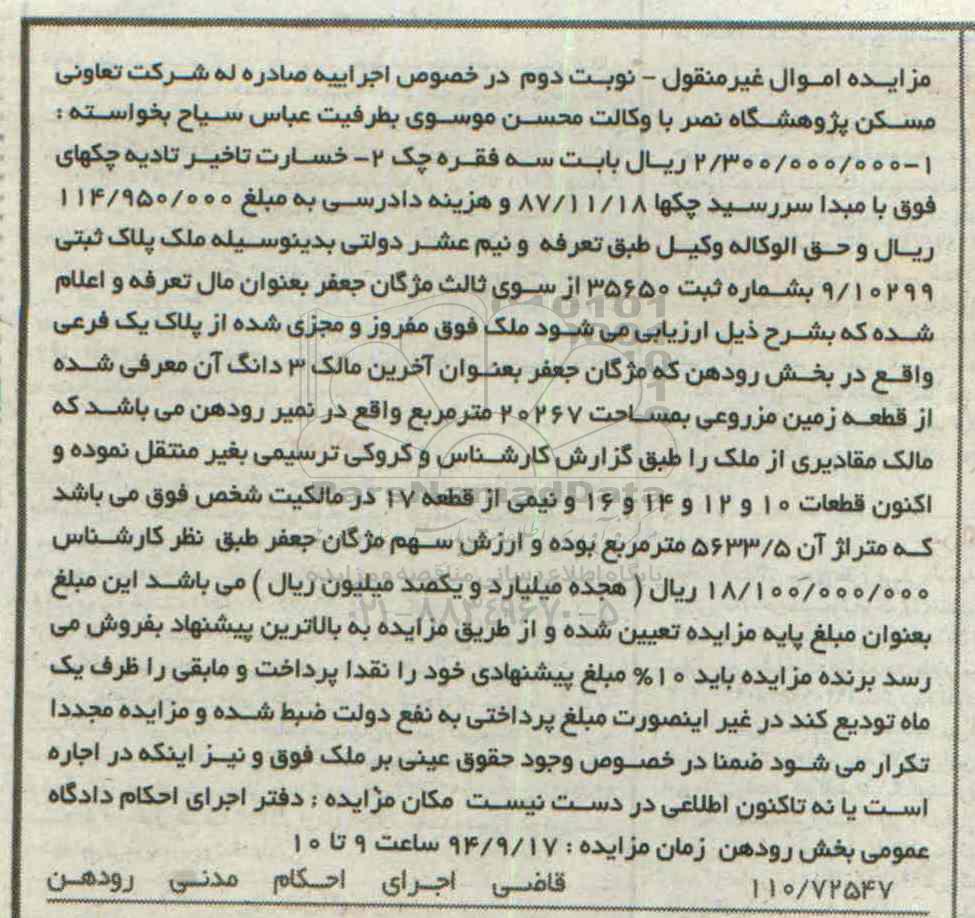 مزایده اموال غیرمنقول - نوبت دوم در خصوص اجراییه صادره له شرکت تعاونی
مسکن پژوهشگاه نصر با وکالت محسن موسوی بطرفیت عباس سیاح بخواسته :
۱-۲/۳۰۰/۰۰۰/۰۰۰ ریال بابت سه فقره چک ۲- خسارت تاخیر تادیه چکهای
فوق با مبدا سررسید چکها ۸۷/۱۱/۱۸ و هزینه دادرسی به مبلغ ۱۱۴/۹۵۰/۰۰۰
ریال و حق الوکاله وکیل طبق تعرفه و نیم عشر دولتی بدینوسیله ملک پلاک ثبتی
۹/۱۰۲۹۹ بشماره ثبت ۳۵۶۵۰ از سوی ثالث مژگان جعفر بعنوان مال تعرفه و اعلام
شده که بشرح ذیل ارزیابی می شود ملک فوق مفروز و مجزی شده از پلاک یک فرعی
واقع در بخش رودهن که مژگان جعفر بعنوان آخرین مالک ۳ دانگ آن معرفی شده
از قطعه زمین مزروعی بمساحت ۲۰۲۶۷ مترمربع واقع در نمیر رودهن می باشد که
مالک مقادیری از ملک را طبق گزارش کارشناس و کروکی ترسیمی بغیر منتقل نموده و
اکنون قطعات ۱۰ و ۱۲ و ۱۴ و ۱۶ و نیمی از قطعه ۱۷ در مالکیت شخص فوق می باشد
که متراژ آن ۵۶۳۳/۵ مترمربع بوده و ارزش سهم مژگان جعفر طبق نظر کارشناس
۱۸/۱۰۰/۰۰۰/۰۰۰ ریال ( هجده میلیارد و یکصد میلیون ریال ) می باشد این مبلغ
بعنوان مبلغ پایه مزایده تعیین شده و از طریق مزایده به بالاترین پیشنهاد بفروش می
رسد برنده مزایده باید ۱۰% مبلغ پیشنهادی خود را نقدا پرداخت و مابقی را ظرف یک
ماه تودیع کند در غیر اینصورت مبلغ پرداختی به نفع دولت ضبط شده و مزایده مجددا
تکرار می شود ضمنا در خصوص وجود حقوق عینی بر ملک فوق و نیز اینکه در اجاره
است یا نه تاکنون اطلاعی در دست نیست مکان مزایده : دفتر اجرای احکام دادگاه
عمومی بخش رودهن زمان مزایده : ۹۴/۹/۱۷ ساعت ۹ تا ۱۰
۱۱۰/۷۲۵۴۷ قاضی اجرای احکام مدنی رودهن
ParsNamadData
پایگاه اطلاع رسانی مناقصه و مزایده
۰۲۱-۸۸۳۴۹۶۷۰-۵